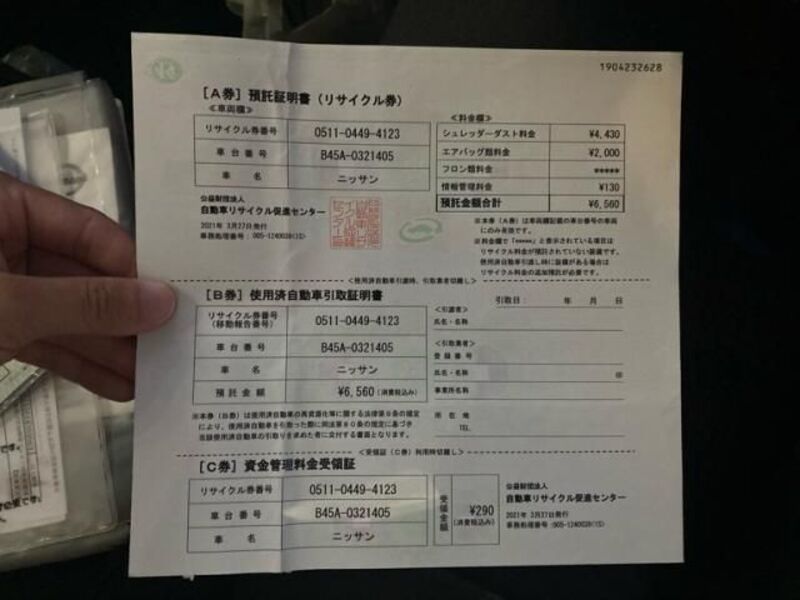 1904232628
[A券] 預託証明書 (リサイクル券)
≪車両欄≫
リサイクル券番号 0511-0449-4123
車台番号 B45A-0321405
車名 ニッサン
≪料金欄≫
シュレッダーダスト料金 ¥4,430
エアバッグ類料金 ¥2,000
フロン類料金 *****
情報管理料金 ¥130
預託金額合計 ¥6,560
公益財団法人
自動車リサイクル促進センター
2021年 3月27日発行
事務処理番号:005-1240028(1S)
※本券(A券)は車両欄記載の車台番号の車両
にのみ有効です。
※料金欄で「*****」と表示されている項目は
リサイクル料金が預託されていない装備です。
使用済自動車引渡し時に装備がある場合は
リサイクル料金の追加預託が必要です。
<使用済自動車引渡時、引取業者切離し>
[B券] 使用済自動車引取証明書
リサイクル券番号
(移動報告番号) 0511-0449-4123
車台番号 B45A-0321405
車名 ニッサン
預託金額 ¥6,560(消費税込み)
引取日: 年 月 日
<引渡者>
氏名・名称
<引取業者>
登録番号
氏名・名称 ㊞
事業所名称
所在地
TEL
※本券(B券)は使用済自動車の再資源化等に関する法律第9条の規定
により、使用済自動車を引取った際に同法第80条の規定に基づき
当該使用済自動車の引取りを求めた者に交付する書面となります。
<受領証(C券)利用時切離し>
[C券] 資金管理料金受領証
リサイクル券番号 0511-0449-4123
車台番号 B45A-0321405
車名 ニッサン
受領金額 ¥290
(消費税込み)
公益財団法人
自動車リサイクル促進センター
2021年 3月27日発行
事務処理番号:005-1240028(1S)